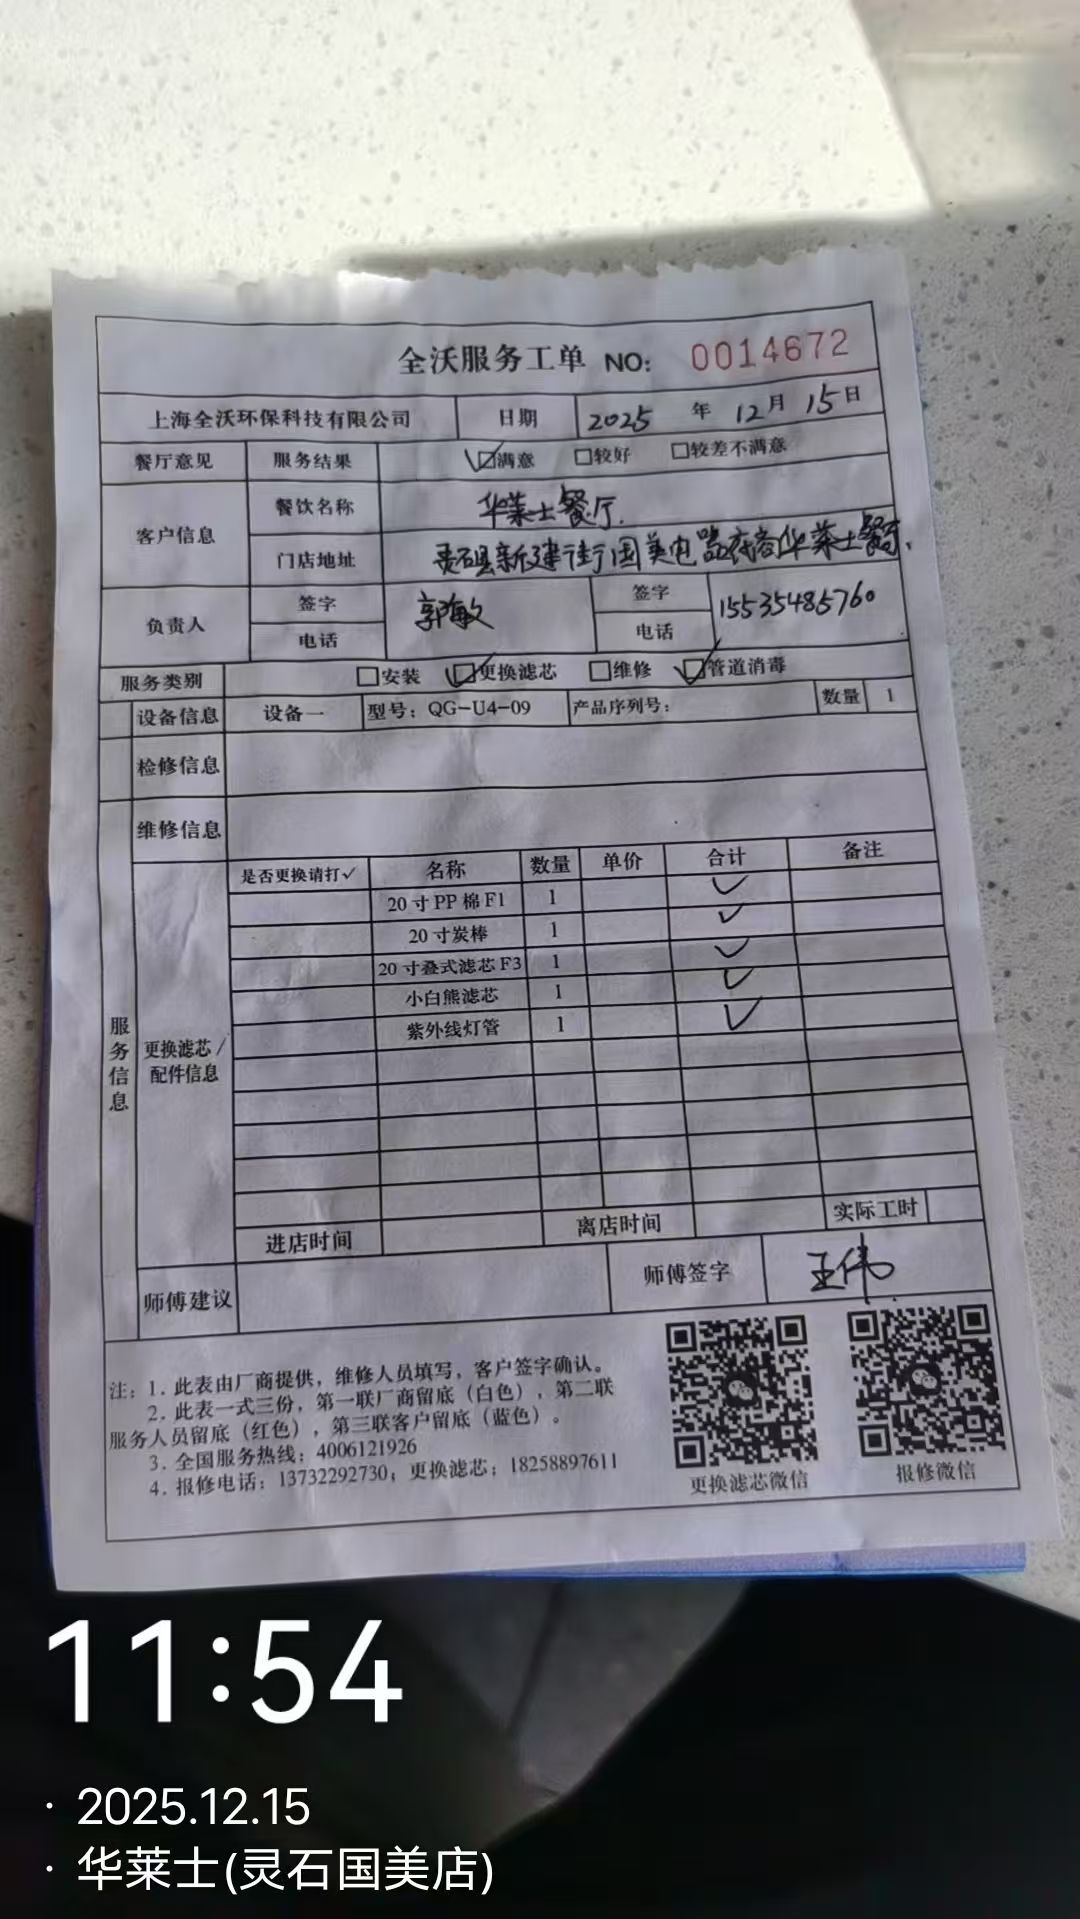 全沃服务工单 NO: 0014672
上海全沃环保科技有限公司 日期 2025 年 12 月 15 日
餐厅意见 服务结果 ☑满意 □较好 □较差不满意
客户信息 餐饮名称 华莱士餐厅.
门店地址 灵石县新建街国美电器夜商华莱士餐厅.
负责人 签字 郭敏 签字
电话 电话 15535485760
服务类别 □安装 ☑更换滤芯 □维修 ☑管道消毒
设备信息 设备一 型号: QG-U4-09 产品序列号: 数量 1
检修信息
维修信息
服务信息
更换滤芯/
配件信息
是否更换请打✓ 名称 数量 单价 合计 备注
20寸PP棉F1 1 ✓
20寸炭棒 1 ✓
20寸叠式滤芯F3 1 ✓
小白熊滤芯 1 ✓
紫外线灯管 1 ✓
进店时间 离店时间 实际工时
师傅建议 师傅签字 王伟
注: 1. 此表由厂商提供，维修人员填写，客户签字确认。
2. 此表一式三份，第一联厂商留底（白色），第二联
服务人员留底（红色），第三联客户留底（蓝色）。
3. 全国服务热线: 4006121926
4. 报修电话: 13732292730; 更换滤芯: 18258897611
更换滤芯微信 报修微信
11:54
· 2025.12.15
· 华莱士(灵石国美店)